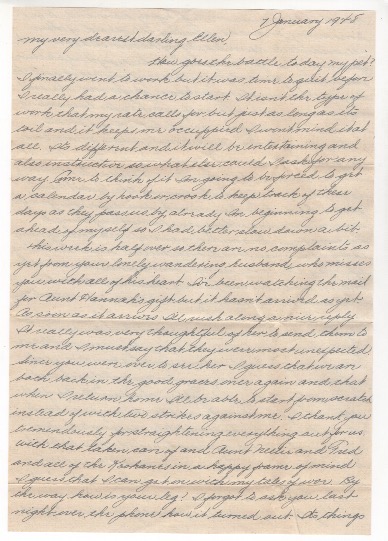 7 January 1945
My very dearest darling Ellen,
How goes the battle today my pet?
I finally went to work but it was time to quit before
I really had a chance to start. It isnt the type of
work that my rate calls for but just as long as its
and it keeps me occuppied I wont mind it at
all. Its different and it will be entertaining and
also instructive so what else could I ask for any
way. Come to think of it Im going to be forced to get
a calendar by hook or crook to keep track of these
days as they pass us by already Im beginning to get
ahead of myself so I had better slow down a bit.
This week is half over so there are no complaints as
yet from your lonely wandering husband who misses
you with all of his heart. Ive been watching the mail
for Aunt Hannah's gift but it hasn't arrived as yet.
As soon as it arrives Ill rush along a nice reply
It really was very thoughtful of her to send them to
me and I must say that they were most unexpected.
Since you were over to see her I guess that we are
both back in the good graces once again and that
when I return home Ill be able to start from scratch
instead of with two strikes against me. I thank you
tremendously for straightening everything out for us
with that taken care of and Aunt Nellie and Fred
and all of the in a happy frame of mind
I guess that I can get on with my tales of woe. By
the way how is your leg? I forgot to ask you last
night over the phone how it turned out. Its things